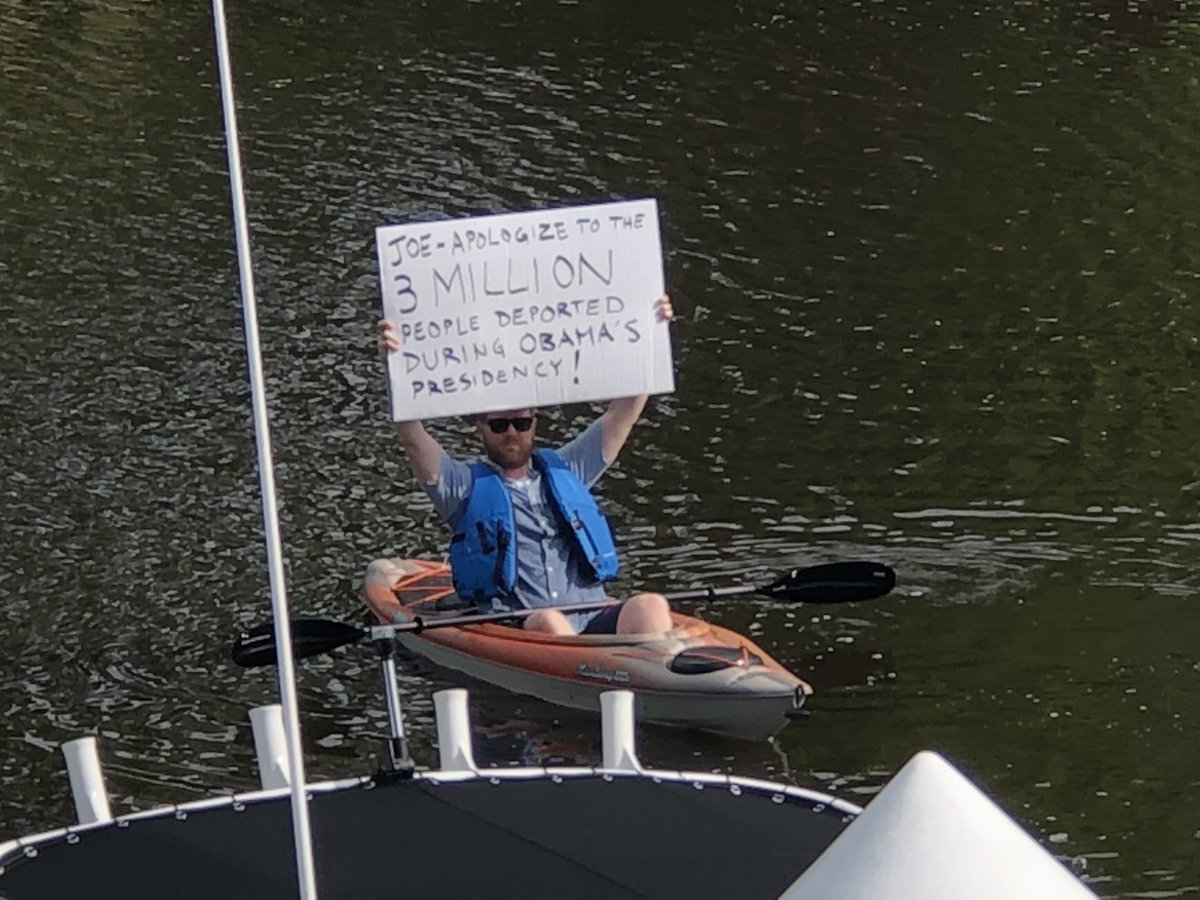 JOE-APOLOGIZE TO THE
3 MILLION
PEOPLE DEPORTED
DURING OBAMA'S
PRESIDENCY!